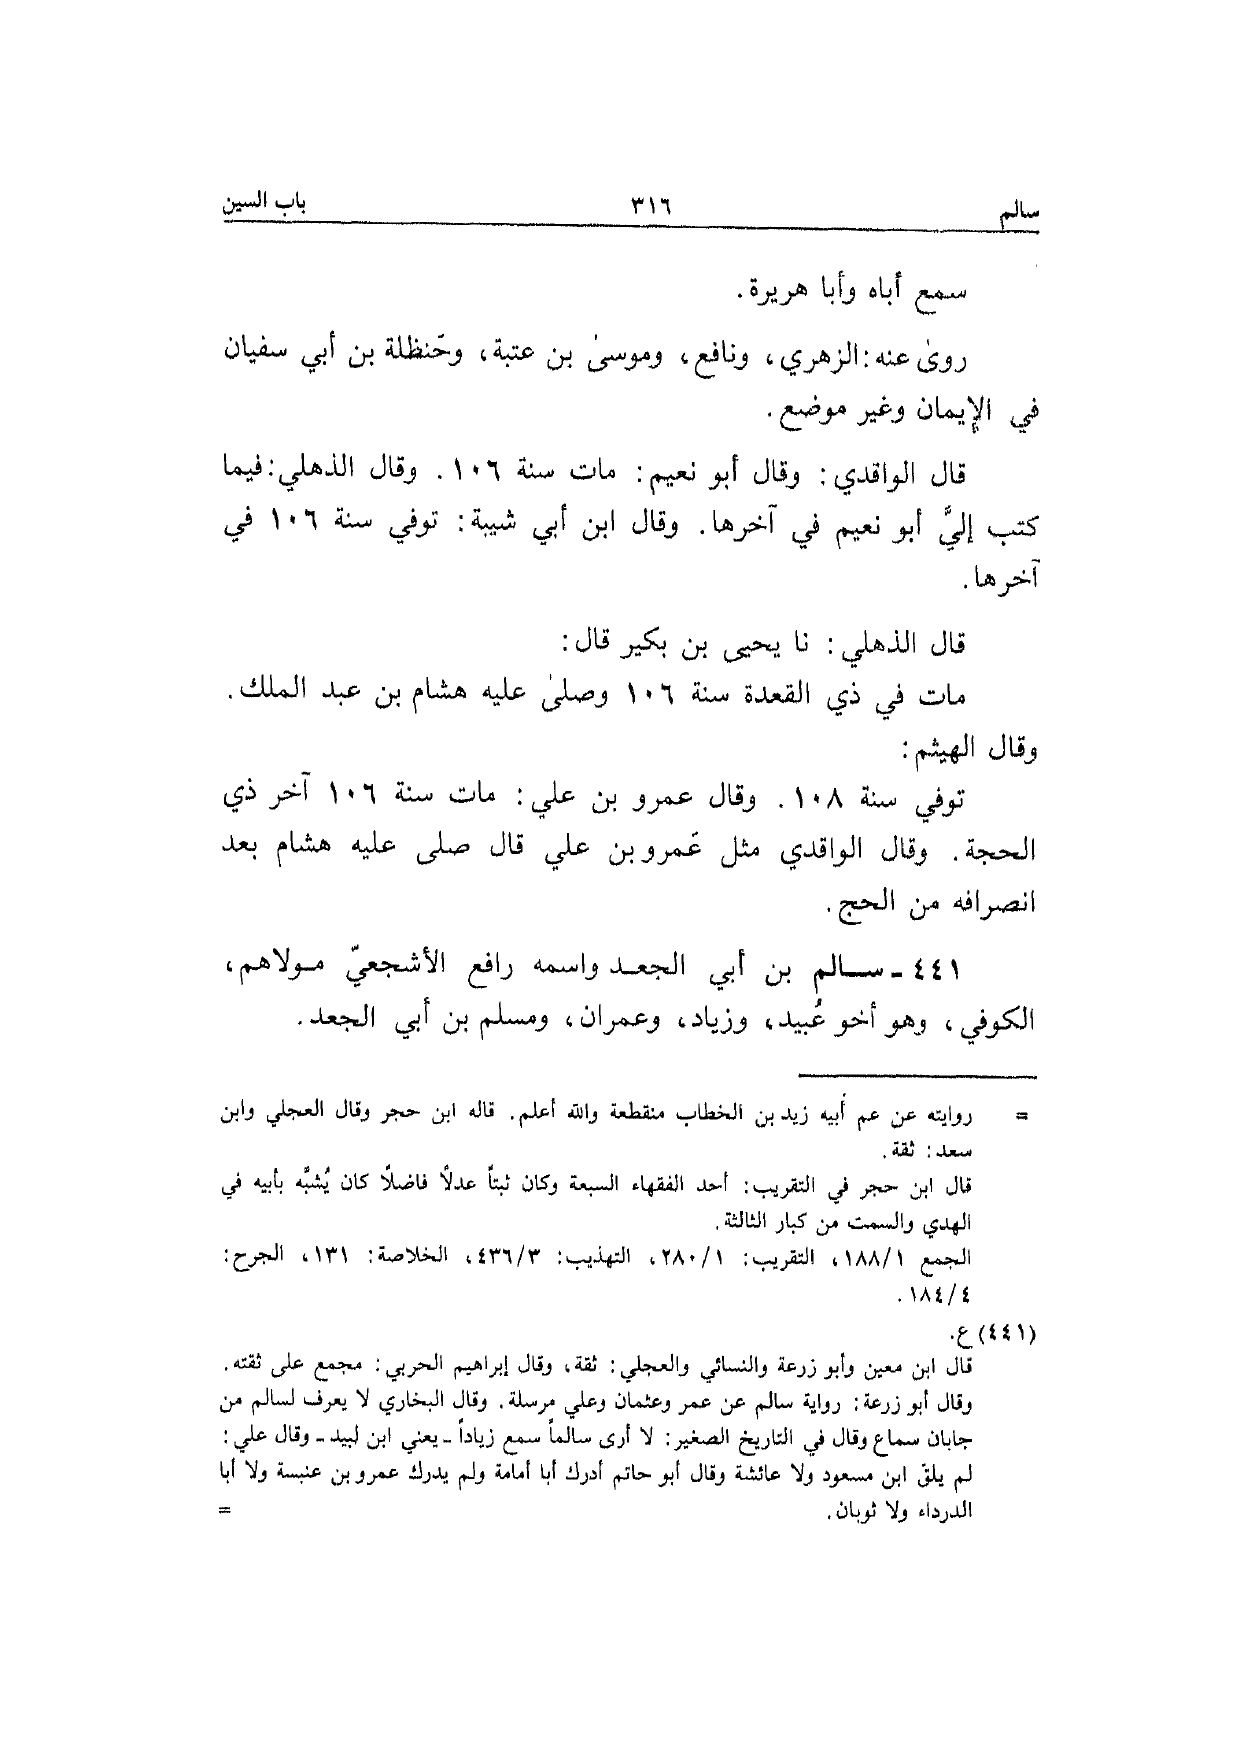 سالم ٣١٦ باب السين
سمع أباه وأبا هريرة.
روىٰ عنه: الزهري، ونافع، وموسىٰ بن عتبة، وحَنظلة بن أبي سفيان
في الإيمان وغير موضع.
قال الواقدي: وقال أبو نعيم: مات سنة ١٠٦. وقال الذهلي: فيما
كتب إليَّ أبو نعيم في آخرها. وقال ابن أبي شيبة: توفي سنة ١٠٦ في
آخرها.
قال الذهلي: نا يحيى بن بكير قال:
مات في ذي القعدة سنة ١٠٦ وصلىٰ عليه هشام بن عبد الملك.
وقال الهيثم:
توفي سنة ١٠٨. وقال عمرو بن علي: مات سنة ١٠٦ آخر ذي
الحجة. وقال الواقدي مثل عَمرو بن علي قال صلى عليه هشام بعد
انصرافه من الحج.
٤٤١ - سالم بن أبي الجعد واسمه رافع الأشجعيّ مولاهم،
الكوفي، وهو أخو عُبيد، وزياد، وعمران، ومسلم بن أبي الجعد.
= روايته عن عم أبيه زيد بن الخطاب منقطعة والله أعلم. قاله ابن حجر وقال العجلي وابن
سعد: ثقة.
قال ابن حجر في التقريب: أحد الفقهاء السبعة وكان ثبتاً عدلاً فاضلاً كان يُشبَّه بأبيه في
الهدي والسمت من كبار الثالثة.
الجمع ١/١٨٨، التقريب: ١/٢٨٠، التهذيب: ٣/٤٣٦، الخلاصة: ١٣١، الجرح:
٤/١٨٤.
(٤٤١) ع.
قال ابن معين وأبو زرعة والنسائي والعجلي: ثقة، وقال إبراهيم الحربي: مجمع على ثقته.
وقال أبو زرعة: رواية سالم عن عمر وعثمان وعلي مرسلة. وقال البخاري لا يعرف لسالم من
جابان سماع وقال في التاريخ الصغير: لا أرى سالماً سمع زياداً - يعني ابن لبيد - وقال علي:
لم يلق ابن مسعود ولا عائشة وقال أبو حاتم أدرك أبا أمامة ولم يدرك عمرو بن عنبسة ولا أبا
الدرداء ولا ثوبان. =